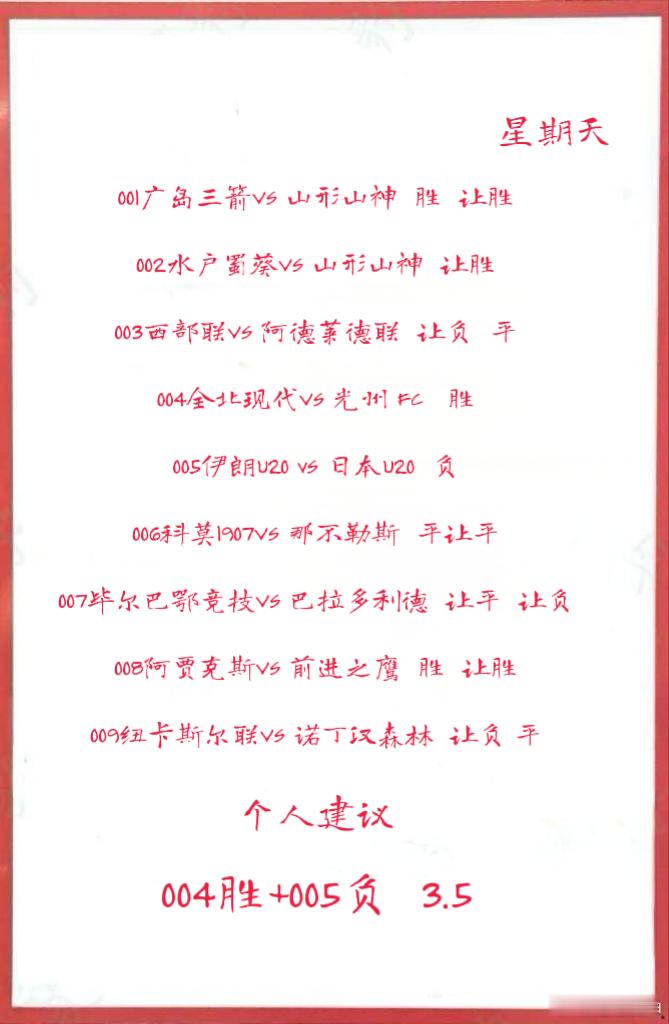 星期天
001广岛三箭VS 山形山神 胜 让胜
002水户蜀葵VS 山形山神 让胜
003西部联VS 阿德莱德联 让负 平
004全北现代VS 光州 FC 胜
005伊朗U20 VS 日本U20 负
006科莫1907VS 那不勒斯 平让平
007毕尔巴鄂竞技VS 巴拉多利德 让平 让负
008阿贾克斯VS 前进之鹰 胜 让胜
009纽卡斯尔联VS 诺丁汉森林 让负 平
个人建议
004胜+005负 3.5